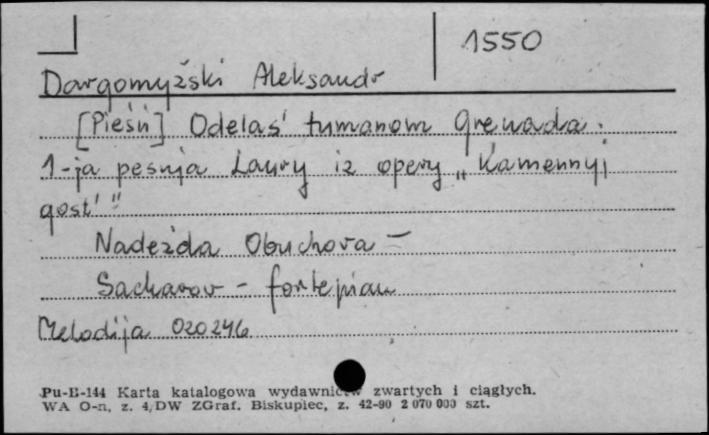 1550
Dargomyżski Aleksandr
[Pieśń] Odelas' tumanom Grenada.
1-ja pesnja Laury iz opery „Kamennyj
gost'"
Nadeżda Obuchova –
Sacharov – fortepian
Melodija 020246
Pu-B-144 Karta katalogowa wydawnictw zwartych i ciągłych.
WA O-n, z. 4/DW ZGraf. Biskupiec, z. 42-90 2 070 000 szt.